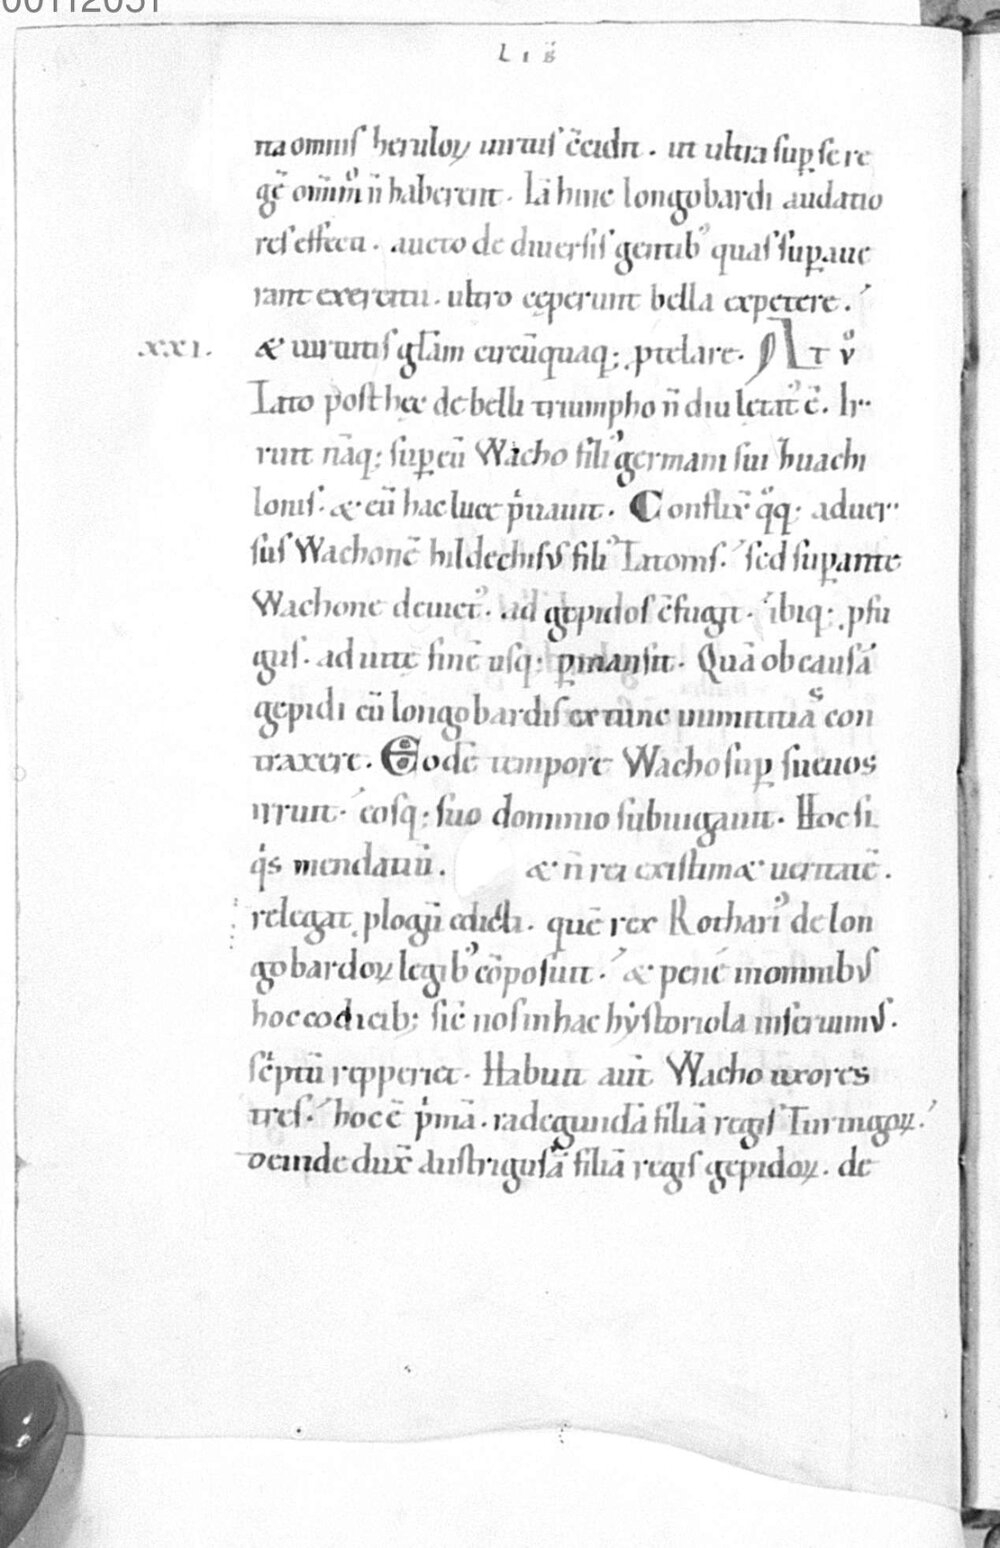 00112051
LIB̃
ita omnis heruloꝝ uirtus c̄cidit. ut ultra suꝑ se re
gē om̄im̊ n̄ haberent. Iā hinc longobardi auditio
res effecti. aucto de diuersis gentib᾽ quas suꝑaue
rant exercitu. ultro cęperunt bella expetere.
XXI. & uirtutis gl̄am circūquaq; ꝓtelare. AT v̊
Tato post hęc de belli triumpho n̄ diu letat᾽ ē. Ir
ruit nāq; suꝑ eū Wacho fili᾽ germani sui huachi
lonis. & eū hac luce p̍uauit. Conflix̄ q̊q; aduer
sus Wachonē hildechisus fili᾽ Tatonis. sed suꝑante
Wachone deuict᾽. ad gępidos c̄fugit. ibiq; ꝓfu
gus. ad uitę finē usq; ꝑmansit. Quā ob causā
gepidi cū longobardis ex tunc inimititiaˢ con
traxere. Eodē tempore Wacho suꝑ sueuos
irruit. eosq; suo dominio subiugauit. Hoc si
q̍s mendatiū. & n̄ rei existim& ueritatē.
relegat ꝓlogū edicti. quē rex Rothari᾽ de lon
gobardoꝝ legib᾽ cōposuit. & pene in omnibus
hoc codicib; sic̄ nos in hac hystoriola inseruimus.
sc̍ptū reꝑperiet. Habuit aut̄ Wacho uxores
tres. hoc ē p̍mā. radegundā filiā regis Turingoꝝ.
deinde dux̄ Austrigusā filiā regis gepidoꝝ. de